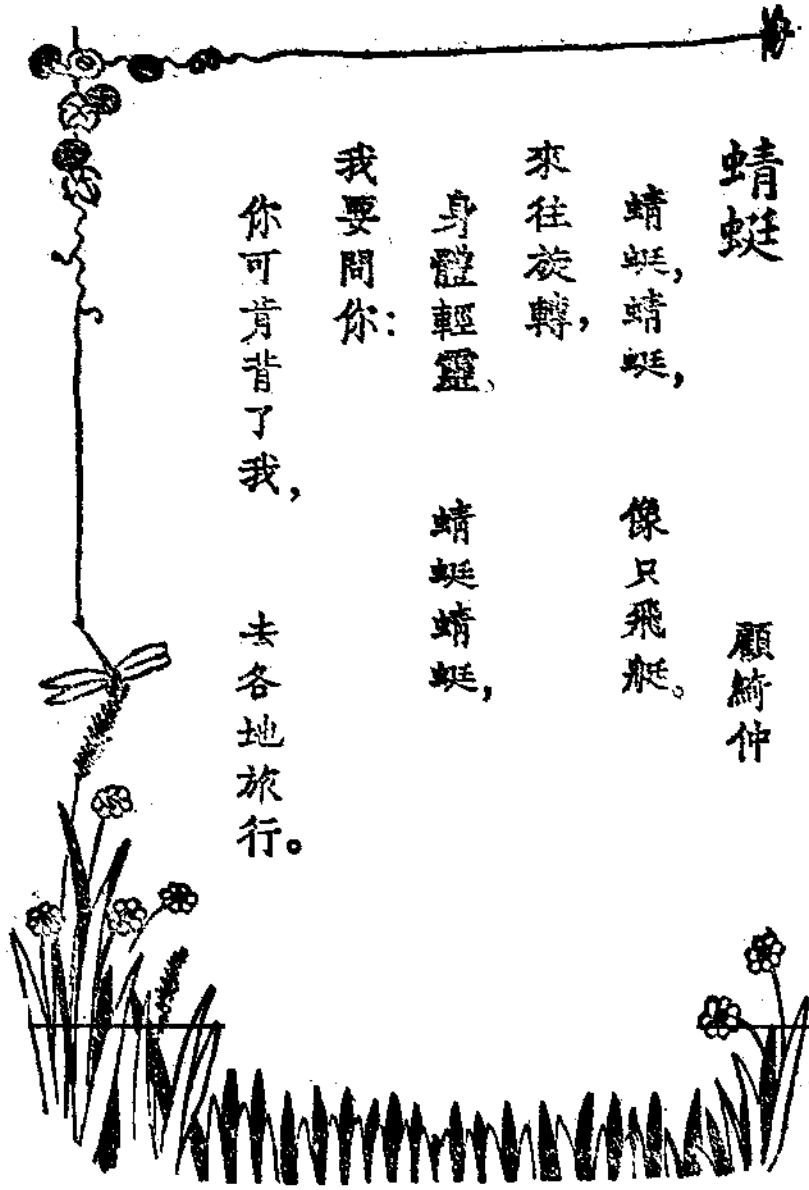 蜻蜓 顧綺仲
蜻蜓,蜻蜓, 像只飛艇。
來往旋轉,
身體輕靈、 蜻蜓蜻蜓,
我要問你:
你可肯背了我, 去各地旅行。